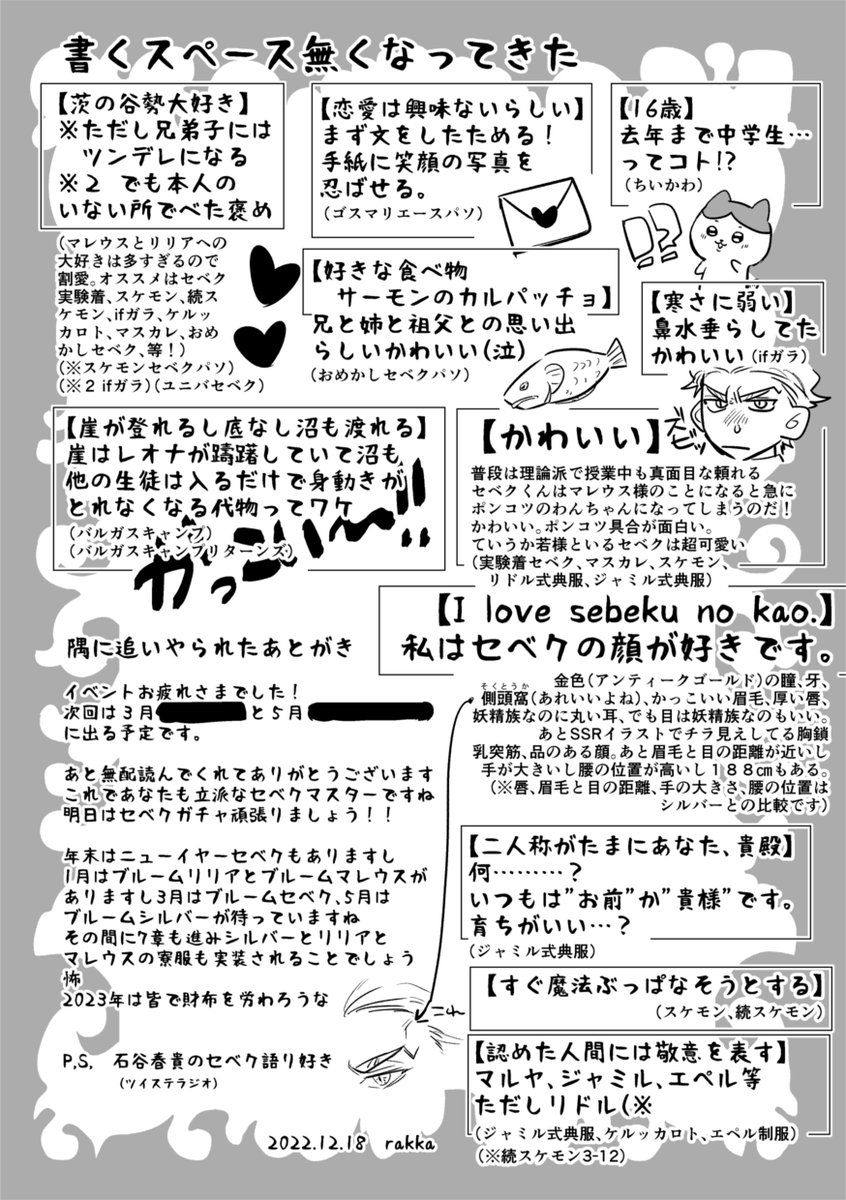 書くスペース無くなってきた
【茨の谷勢大好き】
※ただし兄弟子には
ツンデレになる
※2 でも本人の
いない所でべた褒め
(マレウスとリリアへの
大好きは多すぎるので
割愛。オススメはセベク
実験着、スケモン、続ス
ケモン、ifガラ、ケルッ
カロト、マスカレ、おめ
かしセベク、等!)
(※スケモンセベクパソ)
(※2 ifガラ)(ユニバセベク)
【恋愛は興味ないらしい】
まず文をしたためる!
手紙に笑顔の写真を
忍ばせる。
(ゴスマリエースパソ)
【16歳】
去年まで中学生…
ってコト!?
(ちいかわ)
!?
【好きな食べ物
サーモンのカルパッチョ】
兄と姉と祖父との思い出
らしいかわいい(泣)
(おめかしセベクパソ)
【寒さに弱い】
鼻水垂らしてた
かわいい(ifガラ)
ズビッ
【崖が登れるし底なし沼も渡れる】
崖はレオナが躊躇していて沼も
他の生徒は入るだけで身動きが
とれなくなる代物ってワケ
(バルガスキャンプ)
(バルガスキャンプリターンズ)
かっこいい〜!!
【かわいい】
普段は理論派で授業中も真面目な頼れる
セベクくんはマレウス様のことになると急に
ポンコツのわんちゃんになってしまうのだ!
かわいい。ポンコツ具合が面白い。
ていうか若様といるセベクは超可愛い
(実験着セベク、マスカレ、スケモン、
リドル式典服、ジャミル式典服)
【I love sebeku no kao.】
私はセベクの顔が好きです。
金色(アンティークゴールド)の瞳、牙、
そくとうか
側頭窩(あれいいよね)、かっこいい眉毛、厚い唇、
妖精族なのに丸い耳、でも目は妖精族なのもいい。
あとSSRイラストでチラ見えしてる胸鎖
乳突筋、品のある顔。あと眉毛と目の距離が近いし
手が大きいし腰の位置が高いし188㎝もある。
(※唇、眉毛と目の距離、手の大きさ、腰の位置は
シルバーとの比較です)
隅に追いやられたあとがき
イベントお疲れさまでした!
次回は3月 と5月
に出る予定です。
あと無配読んでくれてありがとうございます
これであなたも立派なセベクマスターですね
明日はセベクガチャ頑張りましょう!!
年末はニューイヤーセベクもありますし
1月はブルームリリアとブルームマレウスが
ありますし3月はブルームセベク、5月は
ブルームシルバーが待っていますね
その間に7章も進みシルバーとリリアと
マレウスの寮服も実装されることでしょう
怖
2023年は皆で財布を労わろうな
これ
P,S, 石谷春貴のセベク語り好き
(ツイステラジオ)
2022.12.18 rakka
【二人称がたまにあなた、貴殿】
何………?
いつもは"お前"か"貴様"です。
育ちがいい…?
(ジャミル式典服)
【すぐ魔法ぶっぱなそうとする】
(スケモン、続スケモン)
【認めた人間には敬意を表す】
マルヤ、ジャミル、エペル等
ただしリドル(※
(ジャミル式典服、ケルッカロト、エペル制服)
(※続スケモン3-12)